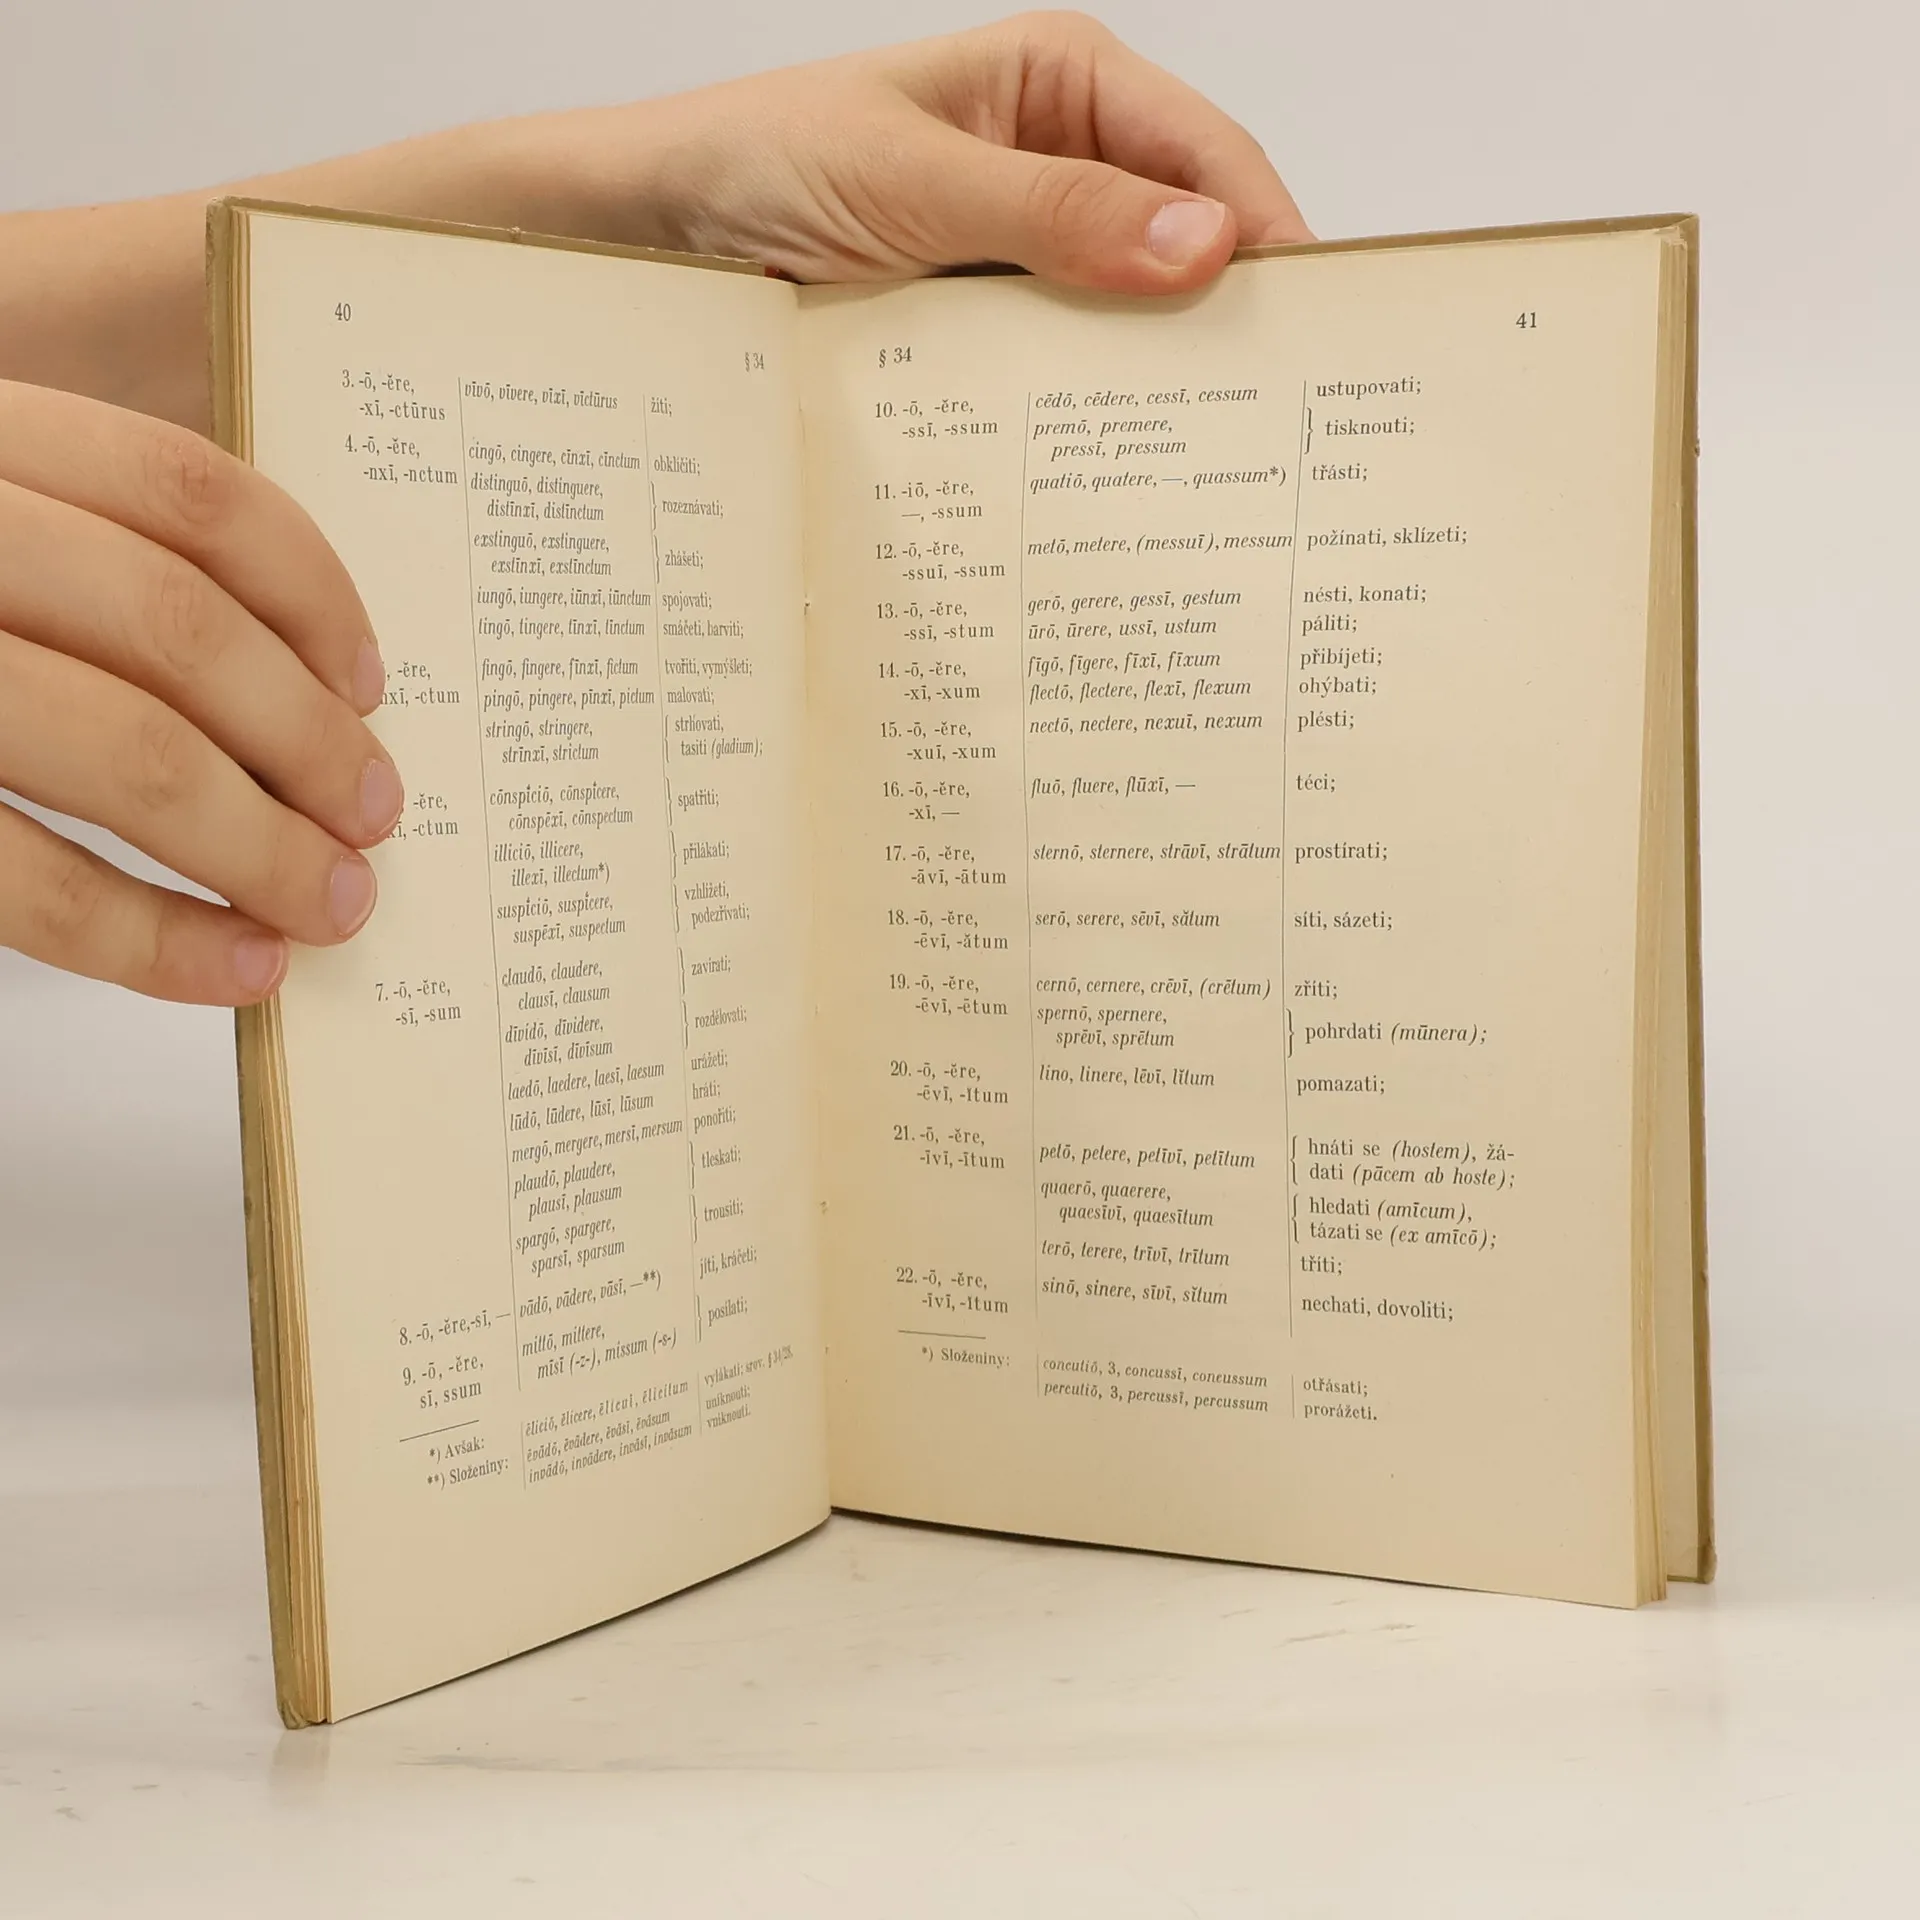 40
§ 34
3. -ō, -ĕre, vīvō, vīvere, vīxī, vīctūrus žíti;
-xī, -ctūrus
4. -ō, -ĕre, cingō, cingere, cīnxī, cīnctum obklíčiti;
-nxī, -nctum distinguō, distinguere,
distīnxī, distīnctum rozeznávati;
exstinguō, exstinguere,
exstīnxī, exstīnctum zhášeti;
iungō, iungere, iūnxī, iūnctum spojovati;
tingō, tingere, tīnxī, tīnctum smáčeti, barviti;
-ĕre, fingō, fingere, fīnxī, fictum tvořiti, vymýšleti;
-ctum pingō, pingere, pīnxī, pictum malovati;
stringō, stringere, strhovati,
strīnxī, strictum tasiti (gladium);
-ĕre, cōnspiciō, cōnspicere,
-ctum cōnspēxī, cōnspectum spatřiti;
illiciō, illicere,
illexī, illectum*) přilákati;
suspiciō, suspicere, vzhlížeti,
suspēxī, suspectum podezřívati;
7. -ō, -ĕre, claudō, claudere, zavírati;
-sī, -sum clausī, clausum
dīvidō, dīvidere,
dīvīsī, dīvīsum rozdělovati;
laedō, laedere, laesī, laesum urážeti;
lūdō, lūdere, lūsī, lūsum hráti;
mergō, mergere, mersī, mersum ponořiti;
plaudō, plaudere,
plausī, plausum tleskati;
spargō, spargere,
sparsī, sparsum trousiti;
8. -ō, -ĕre, -sī, — vādō, vādere, vāsī, —**) jíti, kráčeti;
9. -ō, -ĕre, mittō, mittere,
sī, ssum mīsī (-z-), missum (-s-) posílati;
*) Avšak: ēliciō, ēlicere, ēlicuī, ēlicitum vylákati; srov. § 34/28.
**) Složeniny: ēvādō, ēvādere, ēvāsī, ēvāsum uniknouti;
invādō, invādere, invāsī, invāsum vniknouti.
41
§ 34
10. -ō, -ĕre, cēdō, cēdere, cessī, cessum ustupovati;
-ssī, -ssum premō, premere,
pressī, pressum tisknouti;
11. -iō, -ĕre, quatiō, quatere, —, quassum*) třásti;
—, -ssum
12. -ō, -ĕre, metō, metere, (messuī), messum požínati, sklízeti;
-ssuī, -ssum
13. -ō, -ĕre, gerō, gerere, gessī, gestum nésti, konati;
-ssī, -stum ūrō, ūrere, ussī, ustum páliti;
14. -ō, -ĕre, fīgō, fīgere, fīxī, fīxum přibíjeti;
-xī, -xum flectō, flectere, flexī, flexum ohýbati;
15. -ō, -ĕre, nectō, nectere, nexuī, nexum plésti;
-xuī, -xum
16. -ō, -ĕre, fluō, fluere, flūxī, — téci;
-xī, —
17. -ō, -ĕre, sternō, sternere, strāvī, strātum prostírati;
-āvī, -ātum
18. -ō, -ĕre, serō, serere, sēvī, sătum síti, sázeti;
-ēvī, -ătum
19. -ō, -ĕre, cernō, cernere, crēvī, (crētum) zříti;
-ēvī, -ētum spernō, spernere,
sprēvī, sprētum pohrdati (mūnera);
20. -ō, -ĕre, lino, linere, lēvī, lĭtum pomazati;
-ēvī, -ĭtum
21. -ō, -ĕre, petō, petere, petīvī, petītum hnáti se (hostem), žá-
-īvī, -ītum dati (pācem ab hoste);
quaerō, quaerere, hledati (amīcum),
quaesīvī, quaesītum tázati se (ex amīcō);
terō, terere, trīvī, trītum tříti;
22. -ō, -ĕre, sinō, sinere, sīvī, sĭtum nechati, dovoliti;
-īvī, -ĭtum
*) Složeniny: concutiō, 3, concussī, concussum otřásati;
percutiō, 3, percussī, percussum prorážeti.